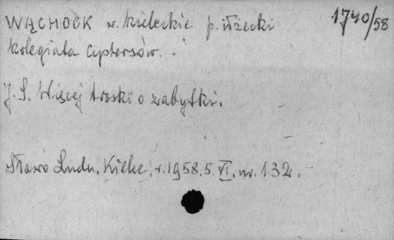 WĄCHOCK w. kieleckie p. iłżecki
1740/58
kolegiata cystersów.
J. S. Więcej troski o zabytki.
Słowo Ludu, Kielce, r. 1958, 5. VI, nr. 132.